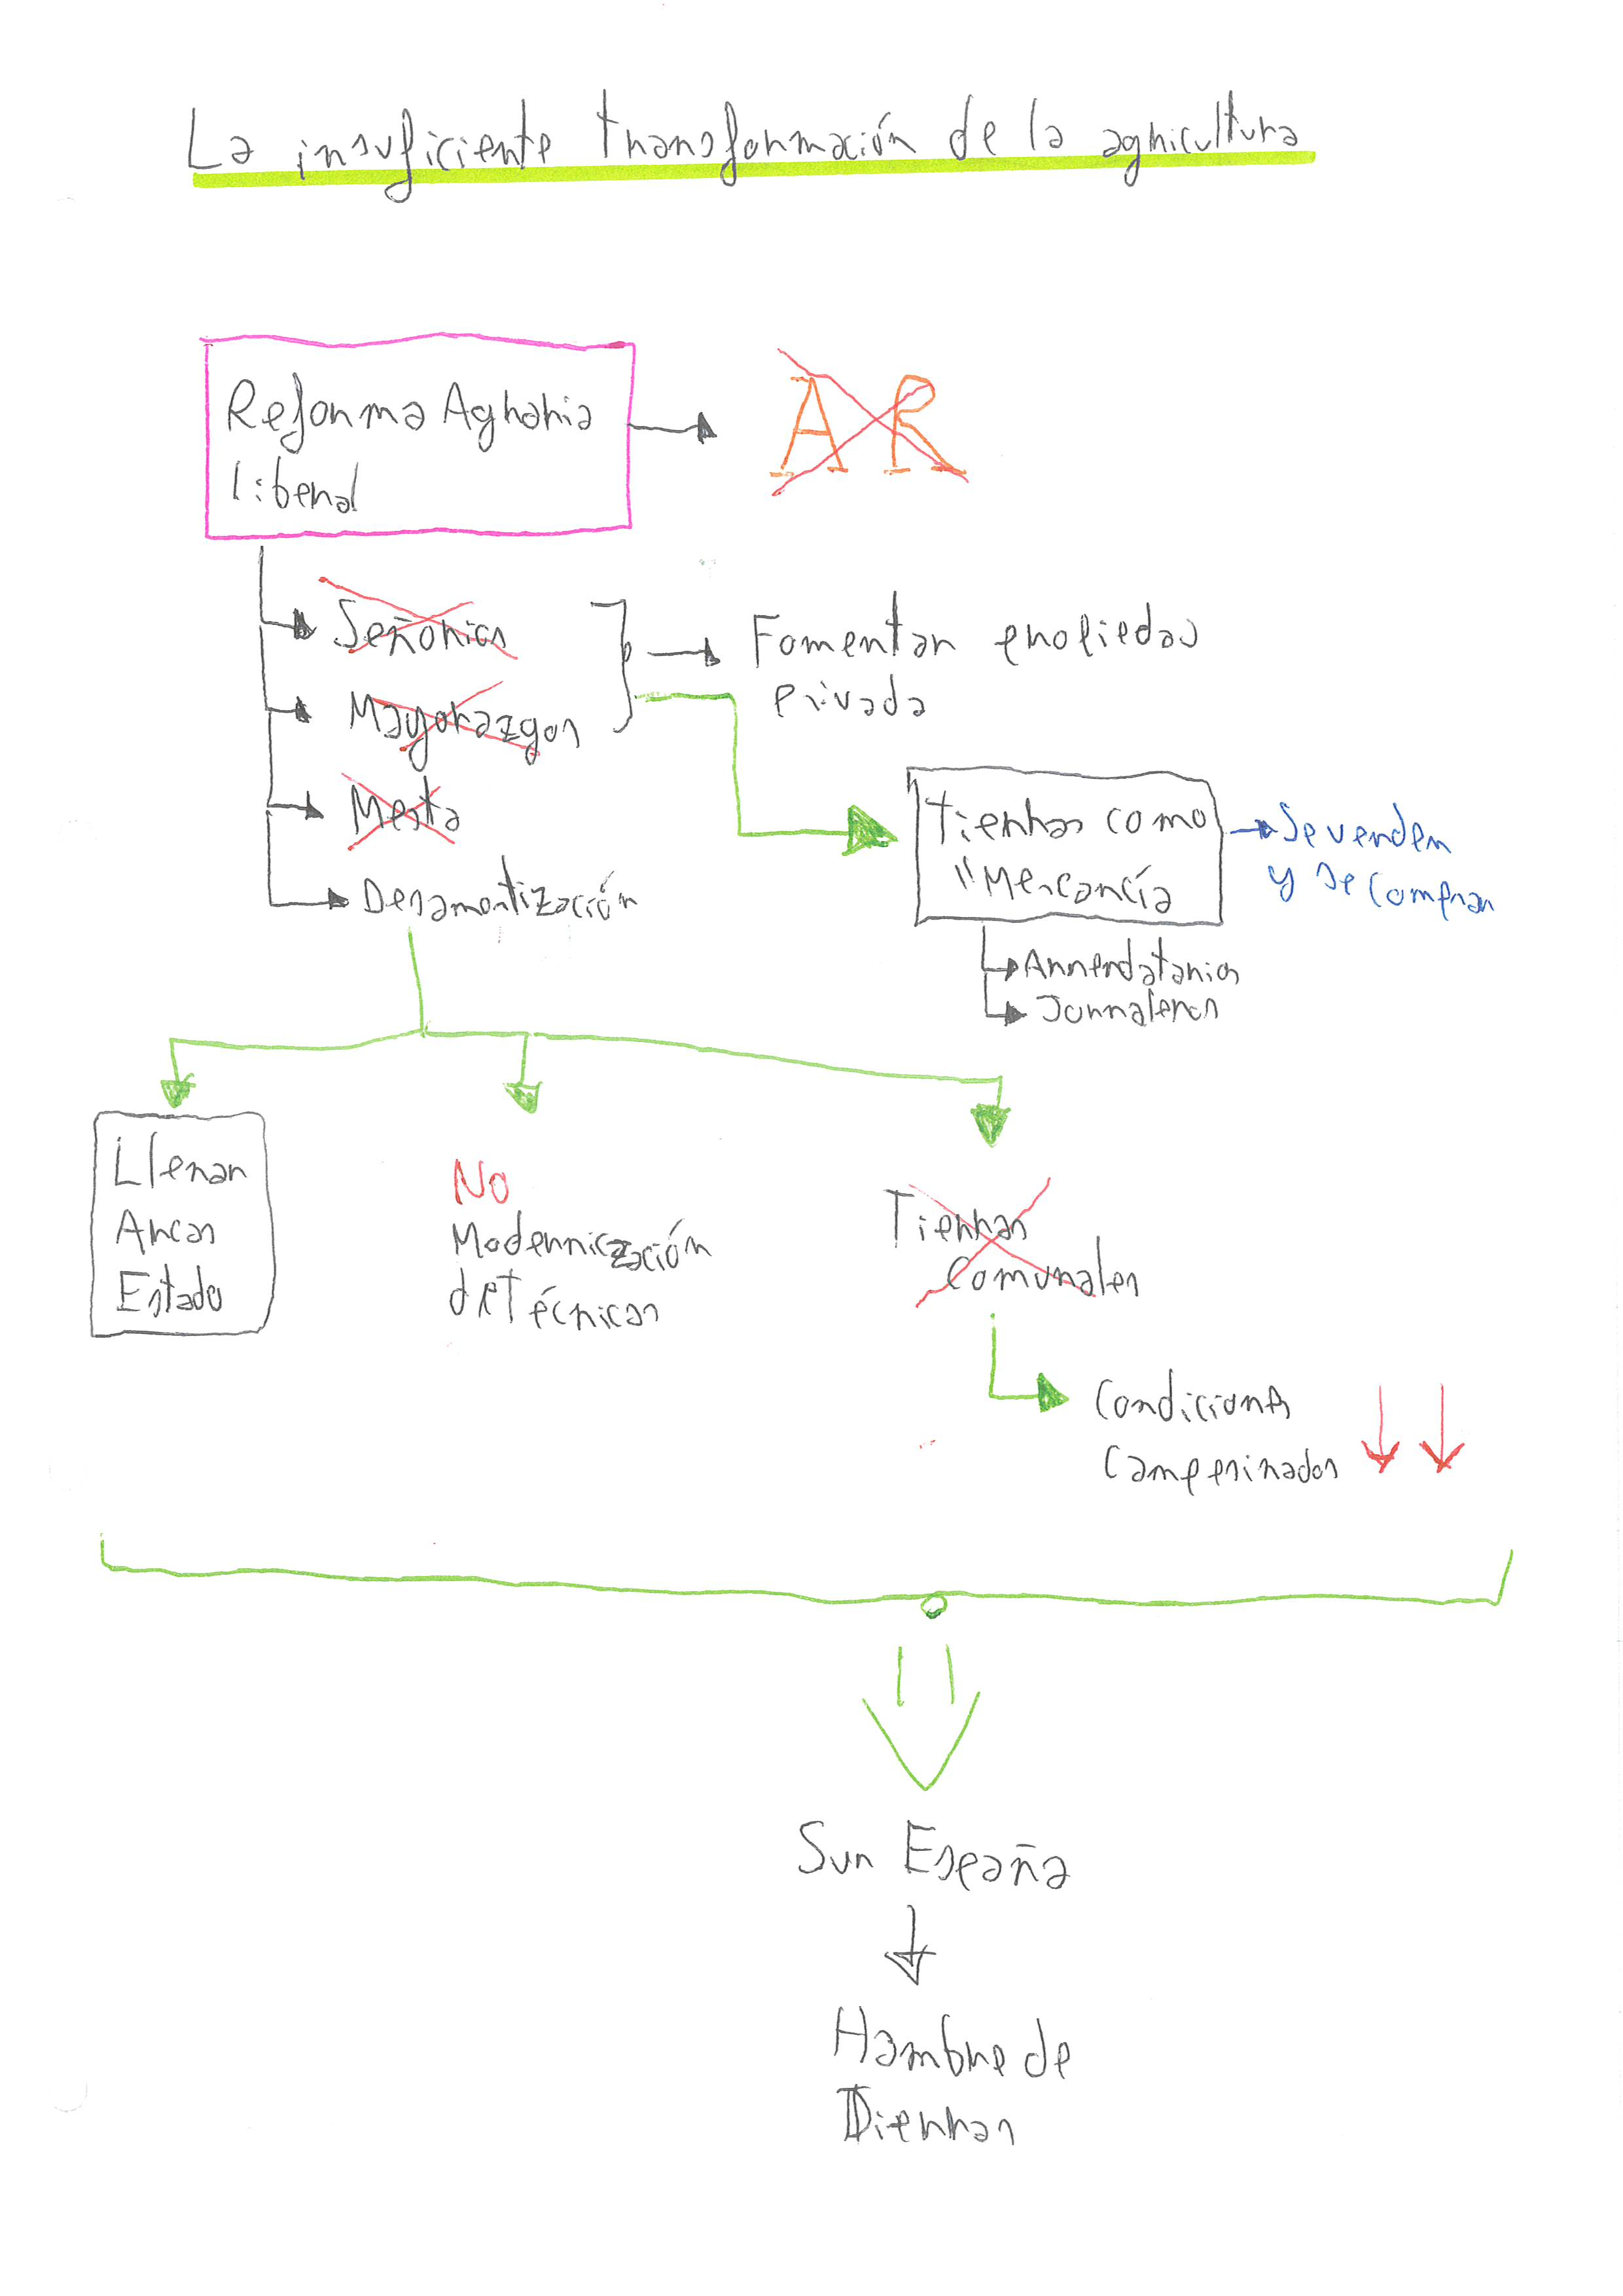 La insuficiente transformación de la agricultura
Reforma Agraria
liberal
AR
Señorios
Mayorazgos
Mesta
Desamortización
Fomentar propiedas
privada
Tierras como
"Mercancía
Se venden
y se compran
Arrendatarios
Jornaleros
Llenar
Arcas
Estado
NO
Moderniczación
de Técnicas
Tierras
comunales
Condiciones
Campesinados
Sur España
Hambre de
Tierras